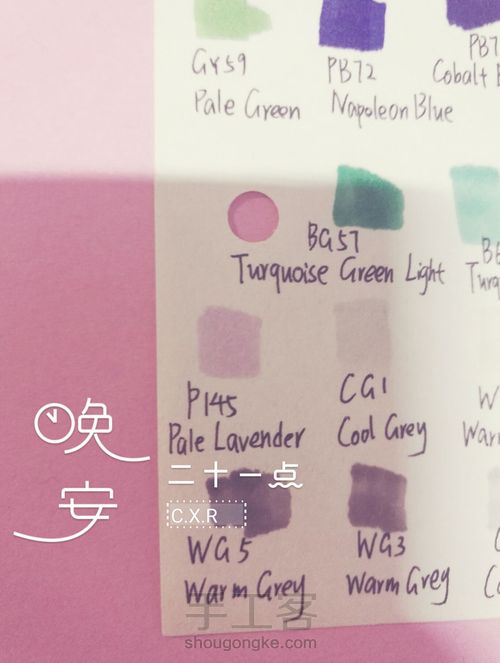 GY59
Pale Green
PB72
Napoleon Blue
Cobalt
BG57
Turquoise Green Light
P145
Pale Lavender
CG1
Cool Grey
晚安
二十一点
C.X.R
WG5
Warm Grey
WG3
Warm Grey
手工客
shougongke.com